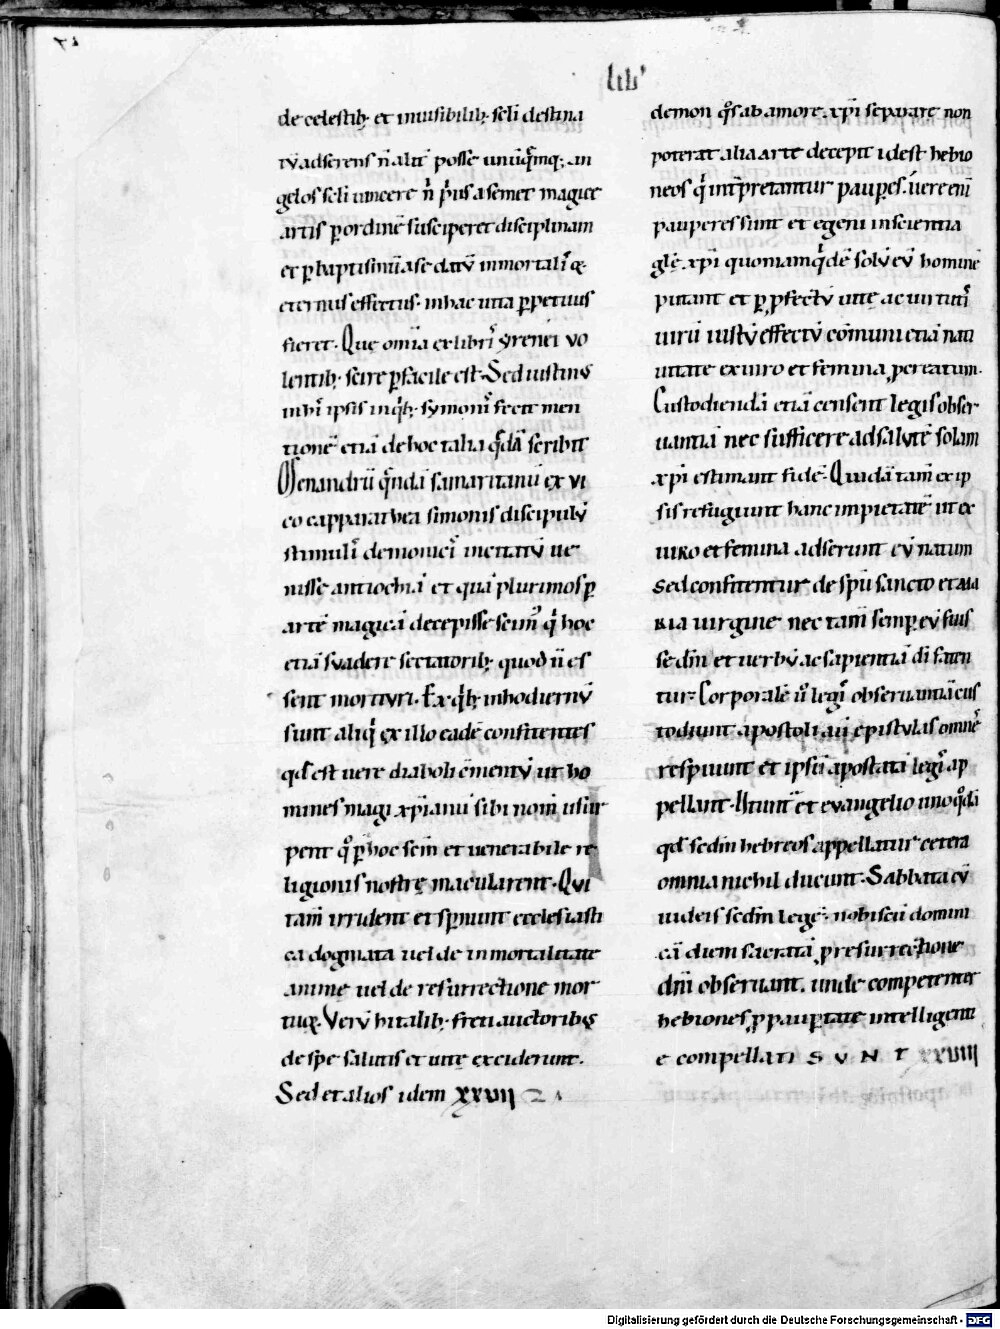 lib'
de celestib; et inuisibilib; scli destina
tū adserens n̄ alit̄ posse unūq̄mq; an
gelos scli uincere n̄ p̄us a semet magice
artis p̄ ordinē susciperet disciplinam
et p̄ baptismū a se datū inmortalis q̄
eternus effectus. in hac uita p̄petuus
fieret. Que om̄ia ex libr̄ yrenei uo
lentib; scire p̄facile est. Sed iustinus
in ipsis inq̄b; symonis fecit men
tionē etiā de hoc talia q̄dā scribit
Menandrū q̄ndā samaritanū ex vi
co capparathea simonis discipulū
stimulis demonicis incitatū ue
nisse antiochiā et quā plurimos p̄
artē magicā decepisse scim' q̄ hoc
etiā svadere sectatorib; quod n̄ es
sent morituri. Ex q̄b; in hodiernū
sunt aliq̄ ex illo eadē confitentes
qđ est uere diaboli ēmentū ut ho
mines magi xp̄ianū sibi nom̄ usur
pent q̄ p̄ hoc scm̄ et uenerabile re
ligionis nostrę macularent. Qui
tam̄ irrident et sp̄nunt ecclesiasti
ca dogmata uel de inmortalitate
anime uel de resurrectione mor
tuoꝝ. Verū hi talib; freti auctoribus
de spe salutis et uite exciderunt.
Sed et alios idem XXVII
demon q̄s ab amore xp̄i separare non
poterat alia arte decepit id est hebio
neos q̄ int̄pretantur paup̄es. uere eni
pauperes sunt et egeni in scientia
glē xp̄i quoniam q̄dē solū eū hominē
putant et p̄ p̄fectū uitę ac uirtutis
uirū iustū effectū cōmuni etiā nati
uitate ex uiro et femina p̄creatum.
Custodiendā etiā censent legis obser
uantiā nec sufficere ad salutē solam
xp̄i estimant fidē. Quidā tam̄ ex ip
sis refugiunt hanc impietatē ut ex
uiro et femina adserunt eū natum
Sed confitentur de sp̄u sancto et ma
ria uirgine nec tam̄ semp̄ eū fuis
se dm̄ et uerbū ac sapientiā di faten
tur. Corporalē u̅ legis obseruantiā cus
todiunt apostoli aū epistulas omnes
respuunt et ipsū apostatā legis ap
pellant. Utunt̄ et evangelio uno q̄dā
qđ sedm̄ hebreos appellatur cetera
omnia nichil ducunt. Sabbata cū
iudeis sedm̄ legē. nobiscū domini
cā diem sacratā p̄ resurrectione
dn̄i obseruant. unde competenter
hebiones p̄ paup̄tate intelligenti
e compellati SUNT XXVIIII
Digitalisierung gefördert durch die Deutsche Forschungsgemeinschaft - DFG